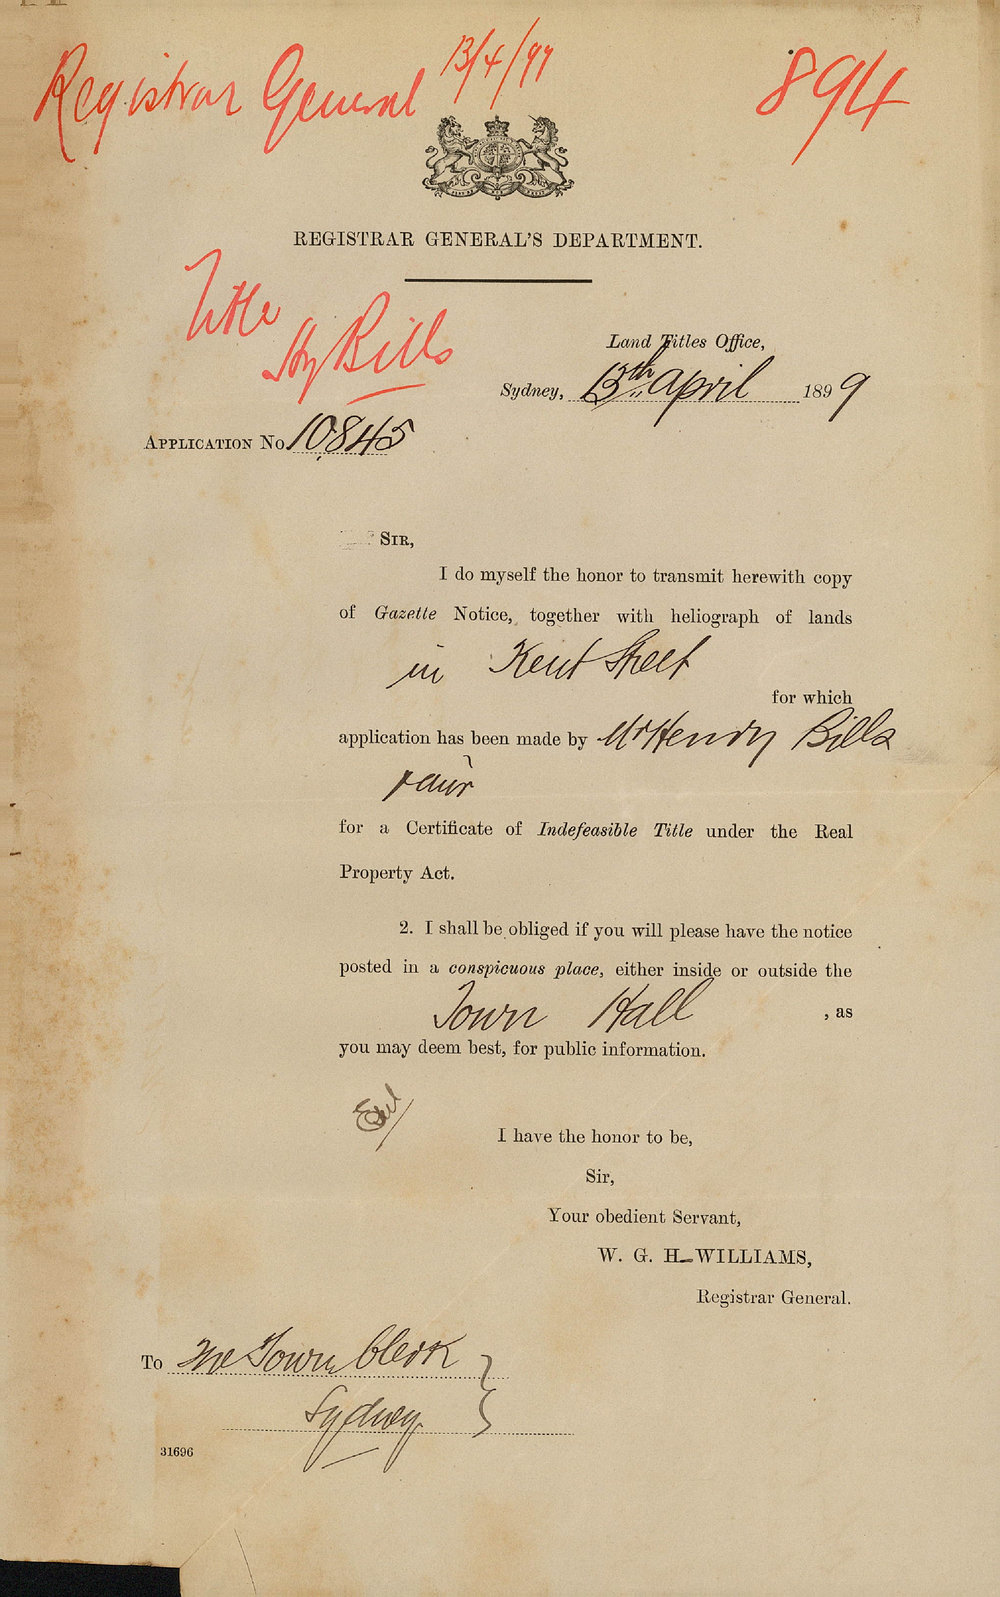 Registrar General 13/4/99
894
REGISTRAR GENERAL'S DEPARTMENT.
Title
Hy Bills
Land Titles Office,
Sydney, 13th April 1899
APPLICATION No. 10845
SIR,
I do myself the honor to transmit herewith copy
of Gazette Notice, together with heliograph of lands
in Kent Street
for which
application has been made by Mr Henry Bills
+ anr
for a Certificate of Indefeasible Title under the Real
Property Act.
2. I shall be obliged if you will please have the notice
posted in a conspicuous place, either inside or outside the
Town Hall , as
you may deem best, for public information.
I have the honor to be,
Sir,
Your obedient Servant,
W. G. H. WILLIAMS,
Registrar General.
To The Town Clerk
Sydney.
31696